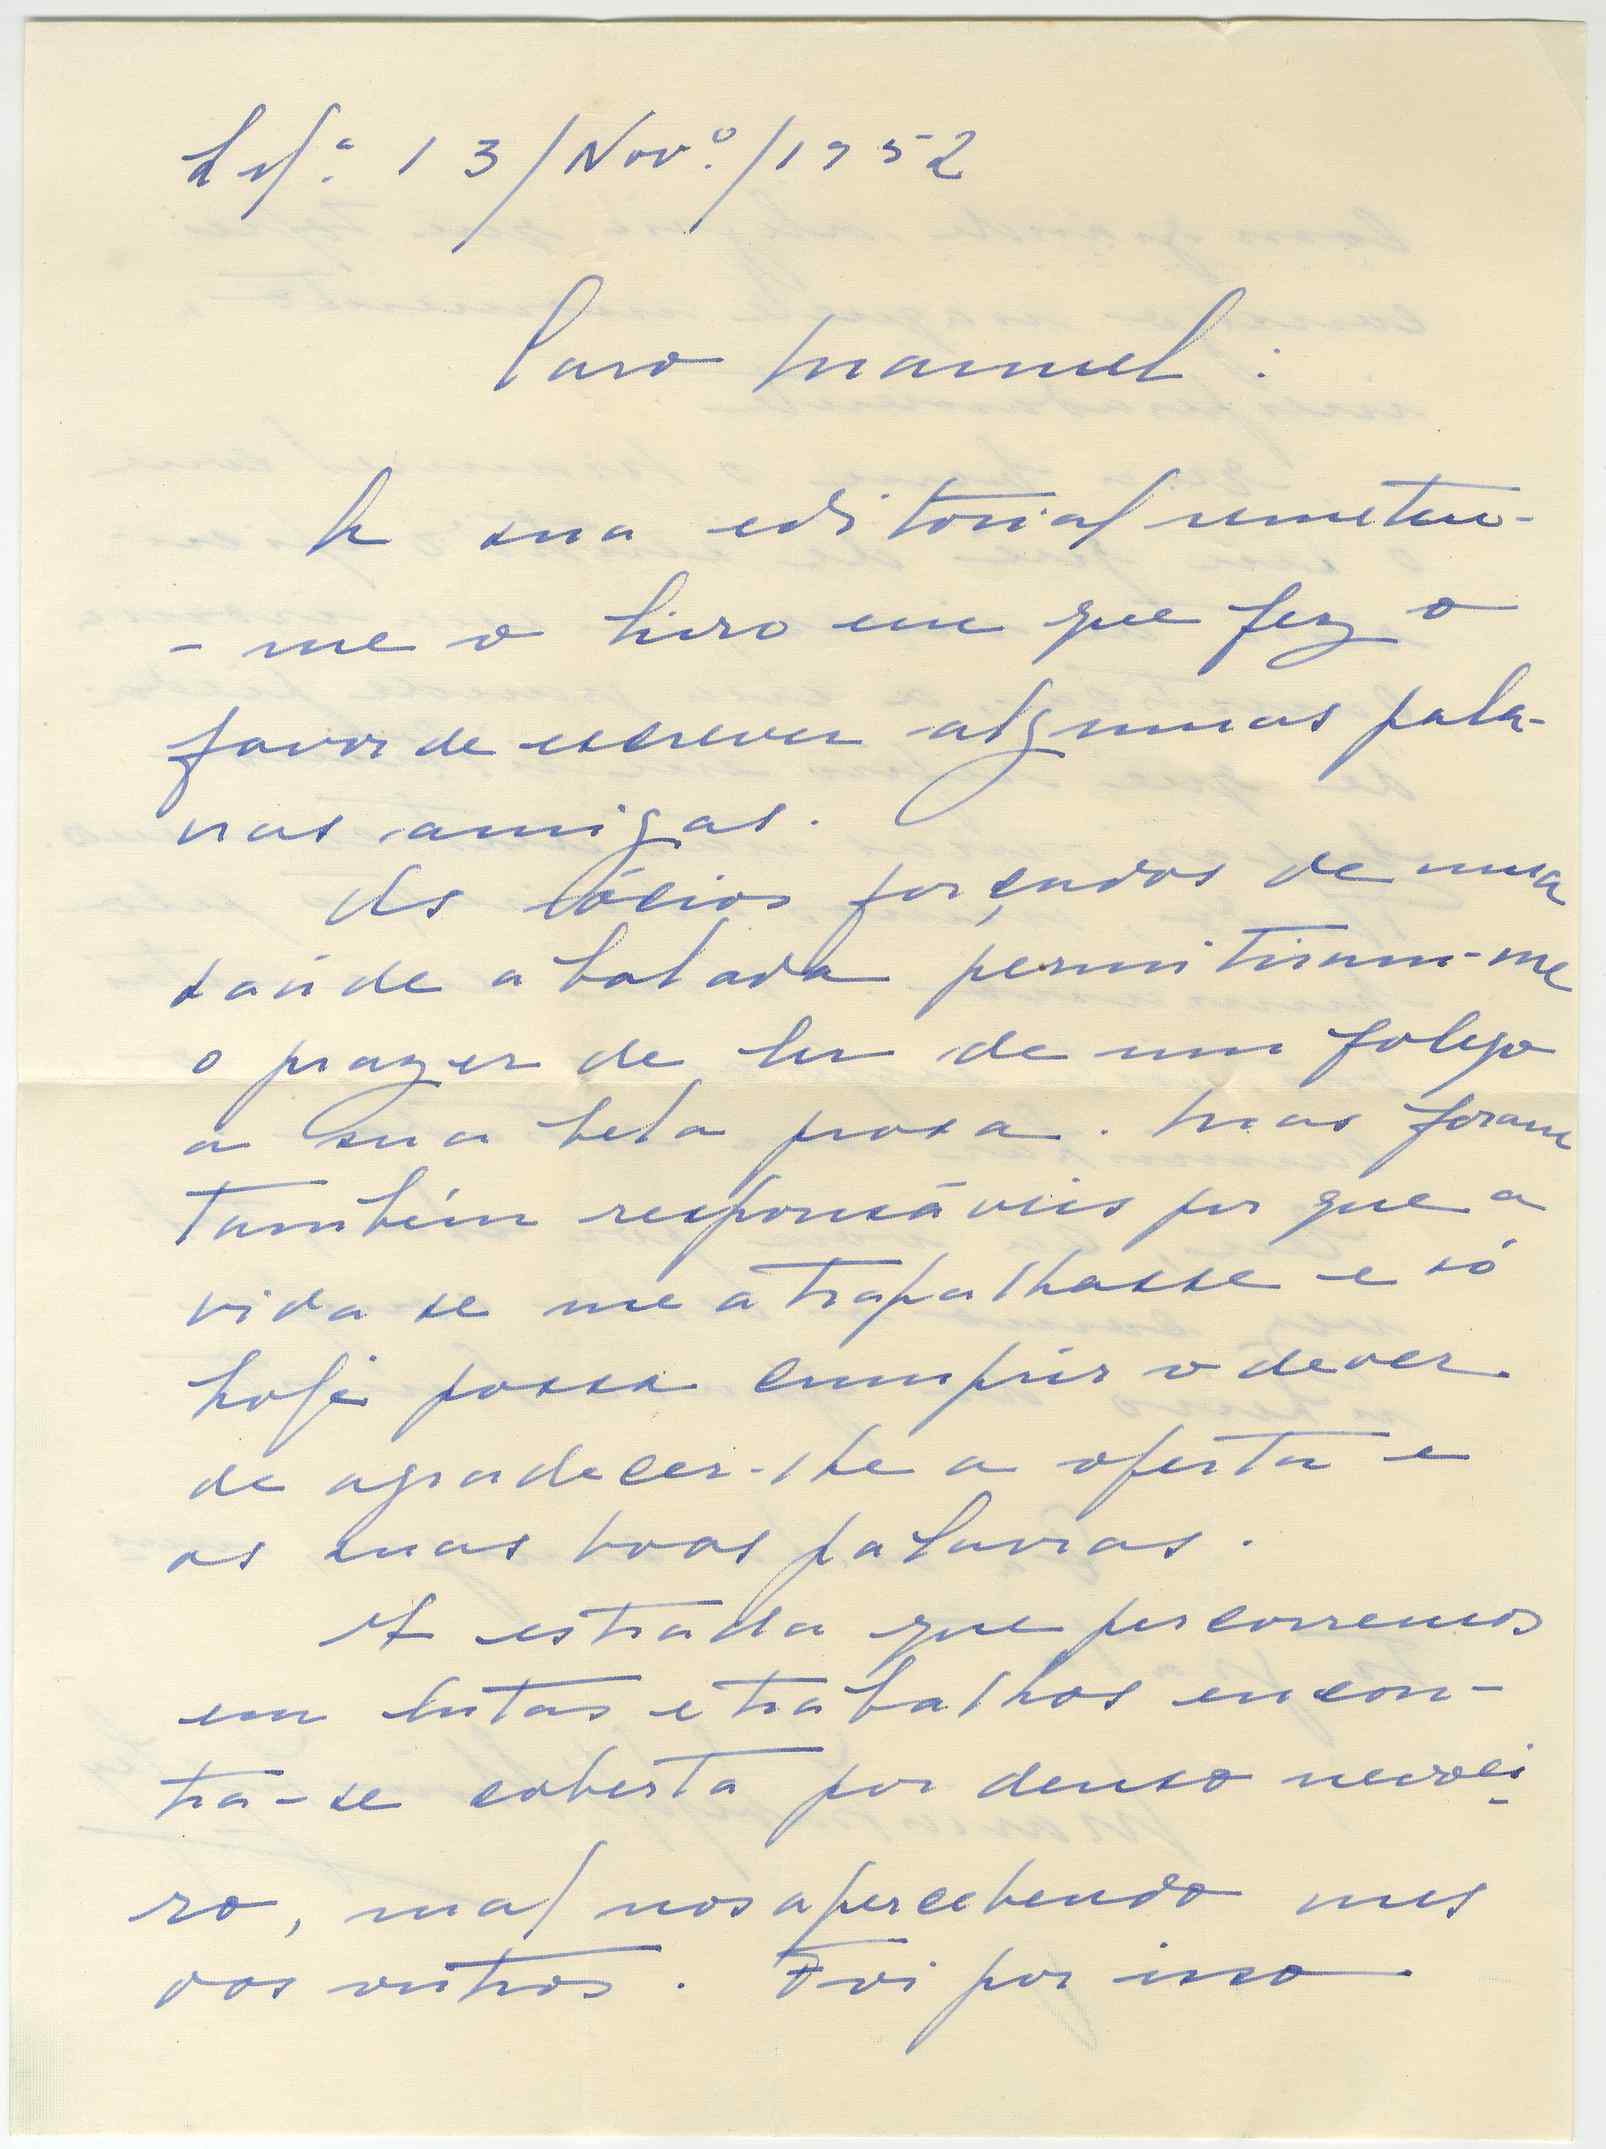 Lxª. 13/Novº./1952
Caro Manuel:
A sua editorial remeteu-
-me o livro em que fez o
favor de escrever algumas pala-
vras amigas.
Os ócios forçados de uma
saúde abalada permitiram-me
o prazer de ler de um folego
a sua bela prosa. Mas foram
também responsáveis por que a
vida se me atrapalhasse e só
hoje possa cumprir o dever
de agradecer-lhe a oferta e
as suas boas palavras.
A estrada que percorremos
em lutas e trabalhos encon-
tra-se coberta por denso nevoei-
ro, mal nos apercebendo uns
aos outros. Foi por isso